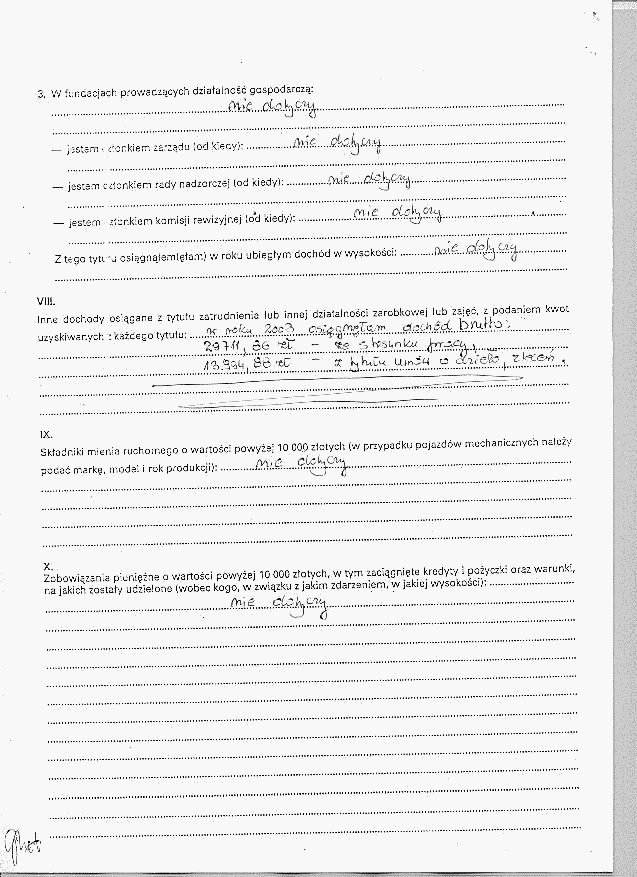 3. W fundacjach prowadzących działalność gospodarczą:
nie dotyczy
— jestem członkiem zarządu (od kiedy): nie dotyczy
— jestem członkiem rady nadzorczej (od kiedy): nie dotyczy
— jestem członkiem komisji rewizyjnej (od kiedy): nie dotyczy
Z tego tytułu osiągnąłem(ęłam) w roku ubiegłym dochód w wysokości: nie dotyczy
VIII.
Inne dochody osiągane z tytułu zatrudnienia lub innej działalności zarobkowej lub zajęć, z podaniem kwot
uzyskiwanych z każdego tytułu: w roku 2003 osiągnęłam dochód brutto:
29711,86 zł – ze stosunku pracy,
13.994,88 zł – z tytułu umów o dzieło, zleceń.
IX.
Składniki mienia ruchomego o wartości powyżej 10 000 złotych (w przypadku pojazdów mechanicznych należy
podać markę, model i rok produkcji): nie dotyczy
X.
Zobowiązania pieniężne o wartości powyżej 10 000 złotych, w tym zaciągnięte kredyty i pożyczki oraz warunki,
na jakich zostały udzielone (wobec kogo, w związku z jakim zdarzeniem, w jakiej wysokości):
nie dotyczy